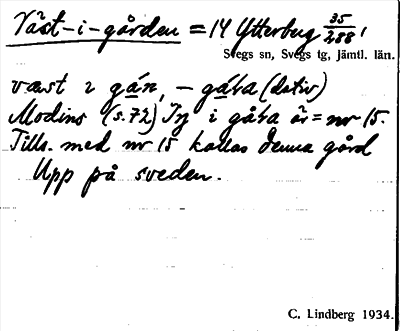 Väst-i-gården = 14 Ytterberg 35/288,
Svegs sn, Svegs tg, Jämtl. län.
væst ı gán, – gáʟa (dativ)
Modins (s. 72) Ty i gåʟa är = nr 15.
Tills. med nr 15 kallas denna gård
Upp på sveden.
C. Lindberg 1934.